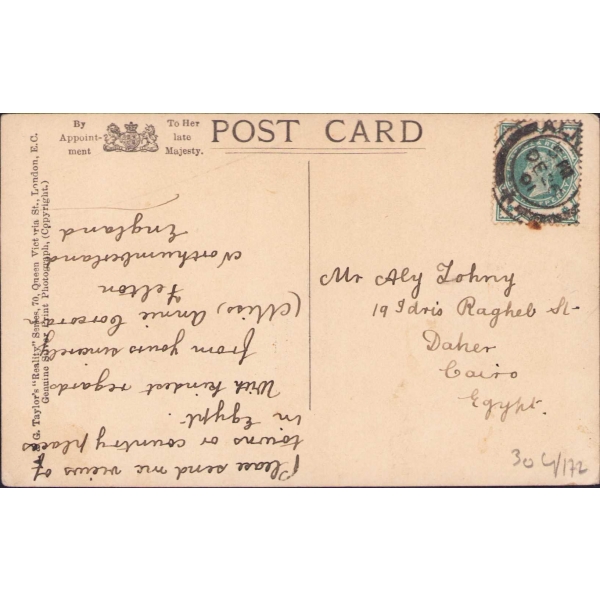 By
Appoint-
ment
To Her
late
Majesty.
POST CARD
A. & G. Taylor's "Reality" Series, 70, Queen Victoria St., London, E.C.
Genuine Silver Print Photograph, (Copyright.)
Please send me views of
towns or country places
in Egypt.
With kindest regards
from yours sincerely
(Miss) Annie Corcoran
Felton
Northumberland
England
Mr Aly Zohny
19 Idris Ragheb St-
Daher
Cairo
Egypt.
DE
01
30 4/172